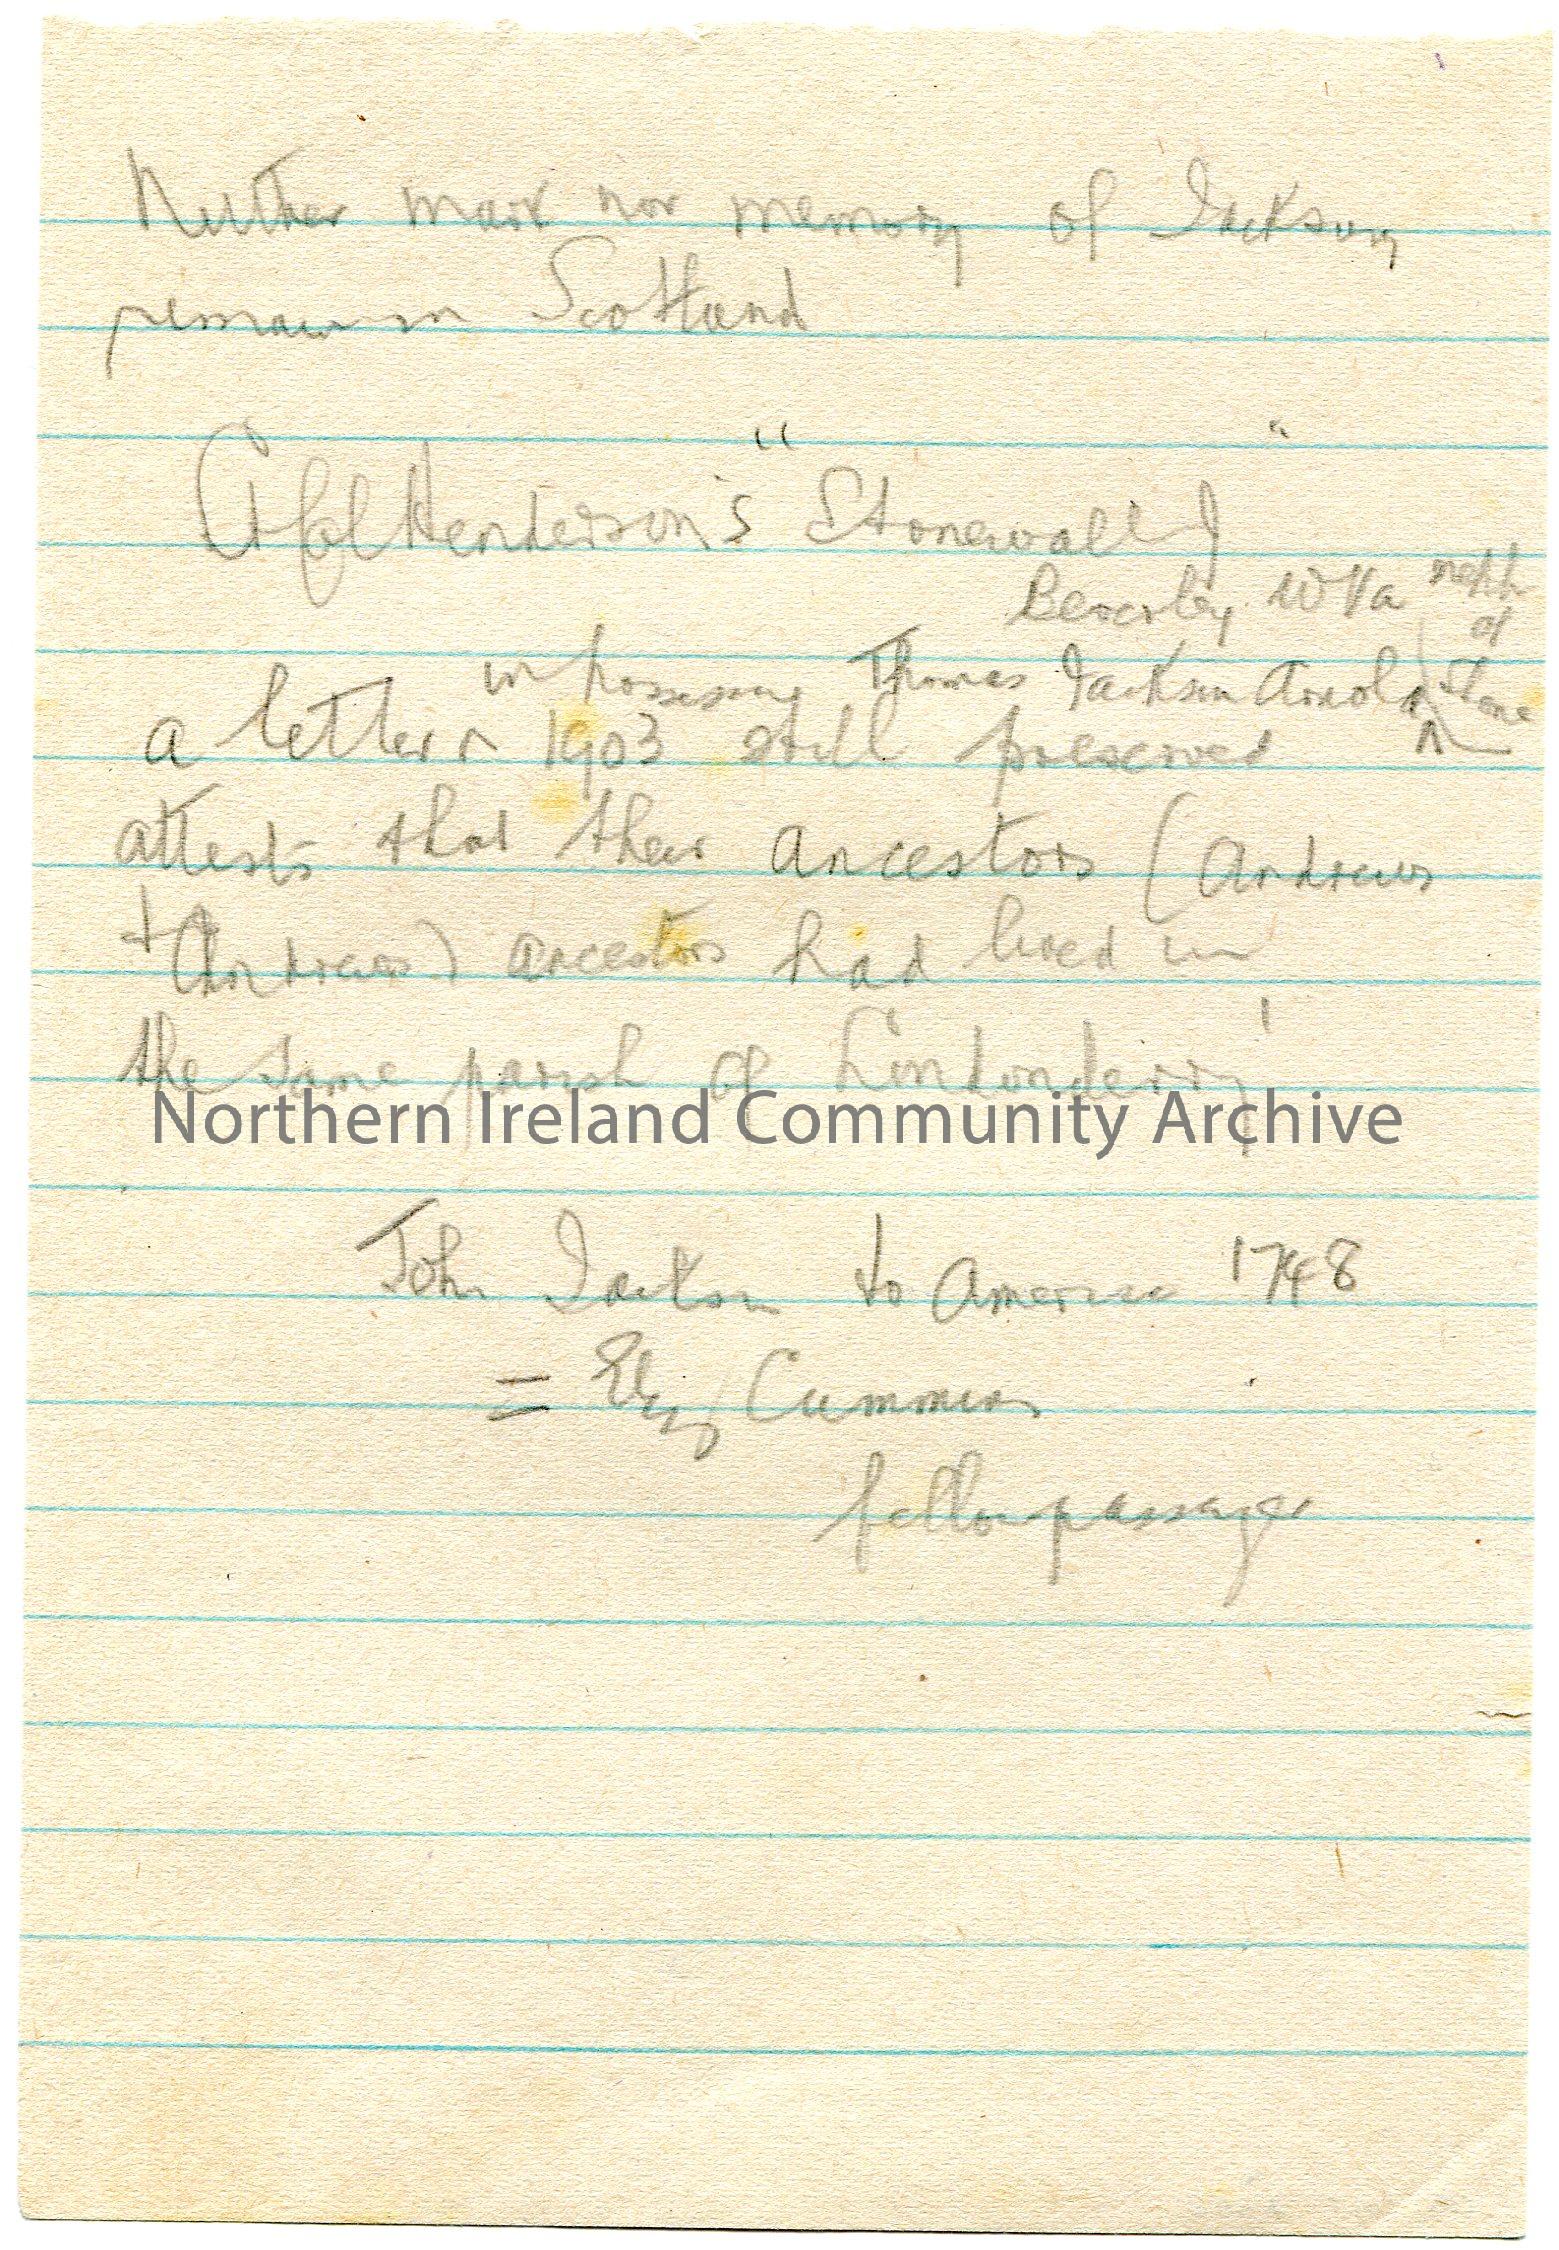 Neither mark nor memory of Jacksons
remain in Scotland
Col Henderson's "Stonewall J"
Beverley W Va neph
of
in possession Thomas Jackson Arnold Stone
a letter 1903 still preserved
attests that their ancestors (Andrews
+ Andrews) ancestors had lived in
the same parish of Londonderry'
Northern Ireland Community Archive
John Jackson to America 1748
= Eliz Cummins
fellow passager